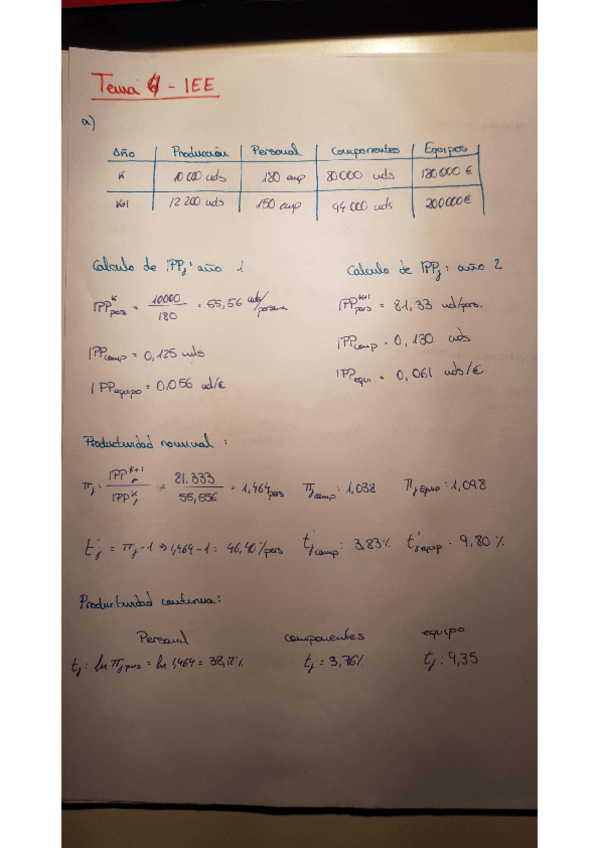 Tema 6 - IEE
a)
Año | Producción | Personal | Componentes | Equipos
K | 10 000 uds | 180 emp | 80 000 uds | 180 000 €
K+1 | 12 200 uds | 150 emp | 94 000 uds | 200 000 €
Calculo de IPPj: año 1
IPP^K pers = 10000/180 = 55,56 uds/persona
IPPcomp = 0,125 uds
IPPequipo = 0,056 ud/€
Calculo de IPPj: año 2
IPP^K+1 pers = 81,33 ud/pers.
IPPcomp = 0,130 uds
IPPequi = 0,061 uds/€
Productividad nominal :
πj: IPPj^K+1 / IPPj^K = 81.333/55,556 = 1,464 pers πj comp: 1,038 πj equipo: 1,098
t'j = πj-1 ⇒ 1,464-1 = 46,40%/pers t'j comp: 3,83% t'j equip = 9,80%
Productividad continua:
Personal componentes equipo
tj: ln πj pers = ln 1,464 = 38,12% tj = 3,76% tj: 9,35